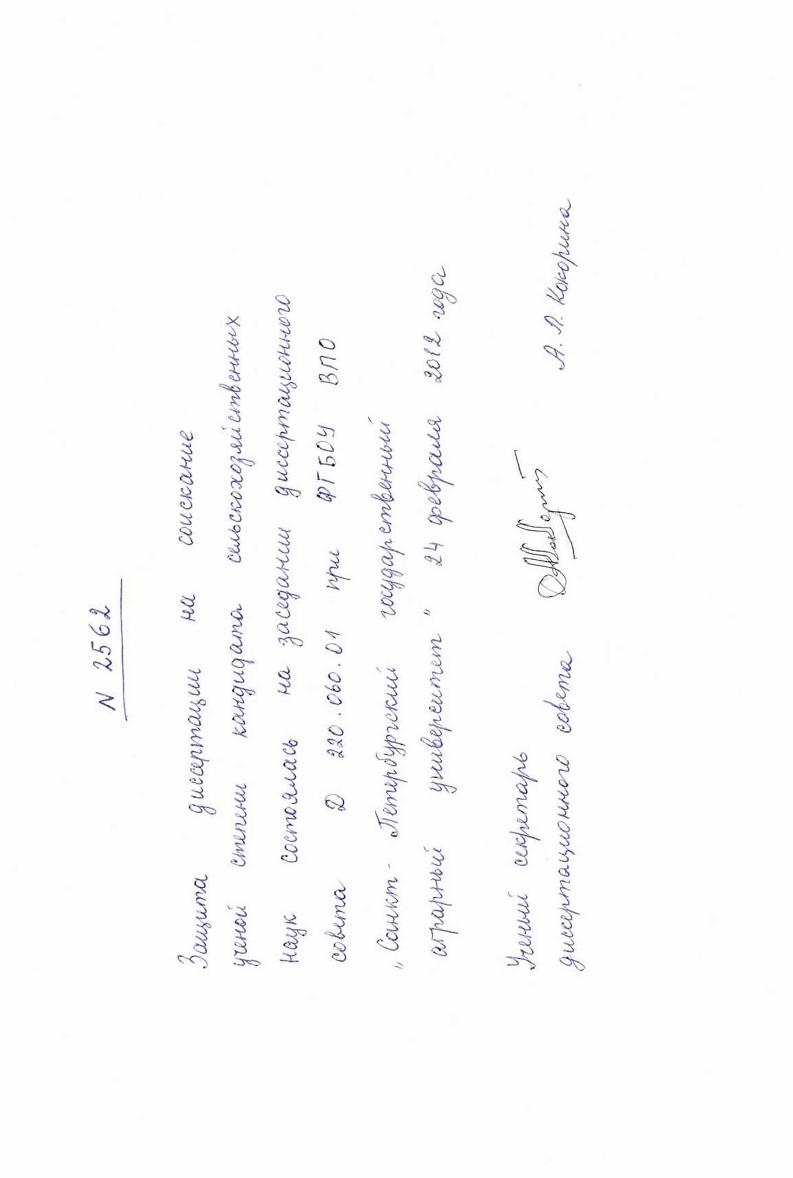 N 2562
Защита диссертации на соискание
ученой степени кандидата сельскохозяйственных
наук состоялась на заседании диссертационного
совета Д 220.060.01 при ФГБОУ ВПО
„Санкт-Петербургский государственный
аграрный университет" 24 февраля 2012 года
Ученый секретарь
диссертационного совета А. Л. Кокорина